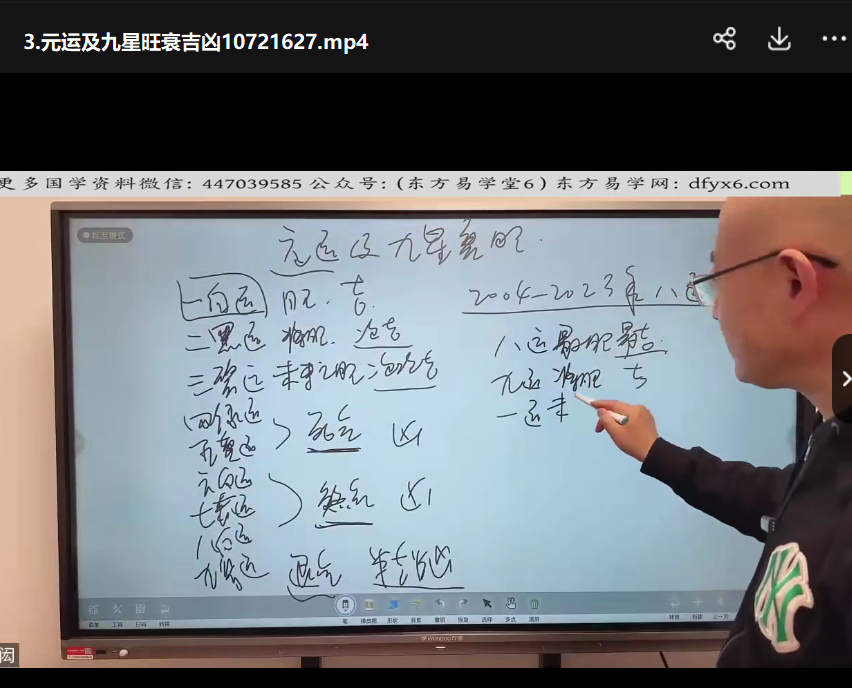 3.元运及九星旺衰吉凶10721627.mp4
更多国学资料微信：447039585 公众号：（东方易学堂6）东方易学网：dfyx6.com
标准模式
元运及九星衰旺.
一白运 旺. 吉.
二黑运 将旺. 次吉
三碧运 未来之旺 次次吉
四绿运
五黄运
死气 凶
六白运
七赤运
煞气 凶
八白运
九紫运 退气 半吉半凶
2004-2023年八运
八运最旺最吉.
九运 将旺 吉
一运 未
菜单 工具 扫码
笔 形状 背景 撤销 恢复 选择 多点 清屏